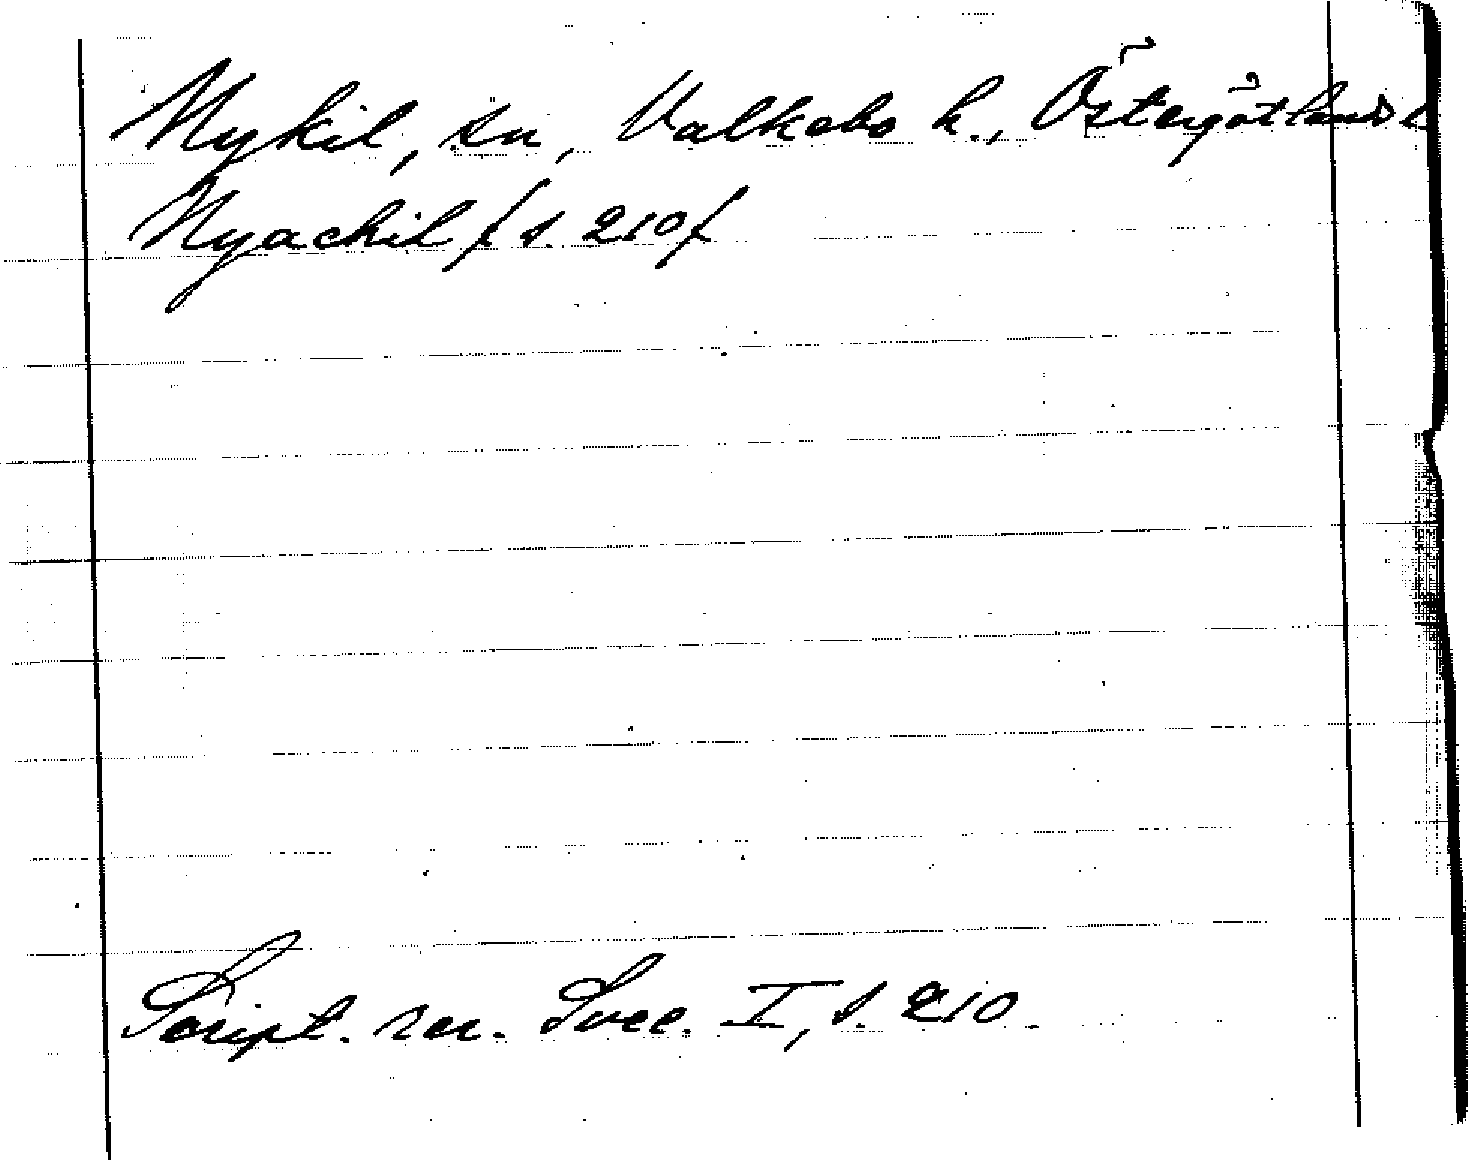 Nykil, sn, Valkebo h., Östergötlands l
Nyachil / s. 210 /
Script. rer. Svec. I, s. 210.